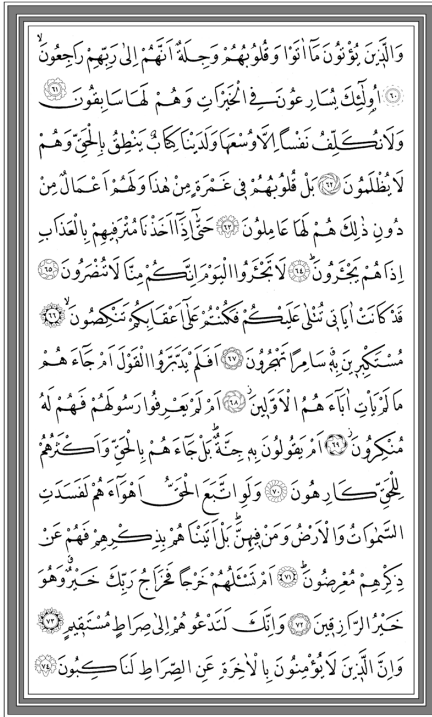 وَالَّذٖينَ يُؤْتُونَ مَٓا اٰتَوْا وَقُلُوبُهُمْ وَجِلَةٌ اَنَّهُمْ اِلٰى رَبِّهِمْ رَاجِعُونَۙ
﴿٦٠﴾ اُو۬لٰٓئِكَ يُسَارِعُونَ فِي الْخَيْرَاتِ وَهُمْ لَهَا سَابِقُونَ ﴿٦١﴾
وَلَا نُكَلِّفُ نَفْساً اِلَّا وُسْعَهَا وَلَدَيْنَا كِتَابٌ يَنْطِقُ بِالْحَقِّ وَهُمْ
لَا يُظْلَمُونَ ﴿٦٢﴾ بَلْ قُلُوبُهُمْ فٖي غَمْرَةٍ مِنْ هٰذَا وَلَهُمْ اَعْمَالٌ مِنْ
دُونِ ذٰلِكَ هُمْ لَهَا عَامِلُونَ ﴿٦٣﴾ حَتّٰٓى اِذَٓا اَخَذْنَا مُتْرَفٖيهِمْ بِالْعَذَابِ
اِذَا هُمْ يَجْـَٔرُونَۜ ﴿٦٤﴾ لَا تَجْـَٔرُوا الْيَوْمَ اِنَّكُمْ مِنَّا لَا تُنْصَرُونَ ﴿٦٥﴾
قَدْ كَانَتْ اٰيَاتٖي تُتْلٰى عَلَيْكُمْ فَكُنْتُمْ عَلٰٓى اَعْقَابِكُمْ تَنْكِصُونَۙ ﴿٦٦﴾
مُسْتَكْبِرٖينَ بِهٖۗ سَامِراً تَهْجُرُونَ ﴿٦٧﴾ اَفَلَمْ يَدَّبَّرُوا الْقَوْلَ اَمْ جَٓاءَهُمْ
مَا لَمْ يَأْتِ اٰبَٓاءَهُمُ الْاَوَّلٖينَۘ ﴿٦٨﴾ اَمْ لَمْ يَعْرِفُوا رَسُولَهُمْ فَهُمْ لَهُ
مُنْكِرُونَۘ ﴿٦٩﴾ اَمْ يَقُولُونَ بِهٖ جِنَّةٌۜ بَلْ جَٓاءَهُمْ بِالْحَقِّ وَاَكْثَرُهُمْ
لِلْحَقِّ كَارِهُونَ ﴿٧٠﴾ وَلَوِ اتَّبَعَ الْحَقُّ اَهْوَٓاءَهُمْ لَفَسَدَتِ
السَّمٰوَاتُ وَالْاَرْضُ وَمَنْ فٖيهِنَّۜ بَلْ اَتَيْنَاهُمْ بِذِكْرِهِمْ فَهُمْ عَنْ
ذِكْرِهِمْ مُعْرِضُونَۜ ﴿٧١﴾ اَمْ تَسْـَٔلُهُمْ خَرْجاً فَخَرَاجُ رَبِّكَ خَيْرٌۗ وَهُوَ
خَيْرُ الرَّازِقٖينَ ﴿٧٢﴾ وَاِنَّكَ لَتَدْعُوهُمْ اِلٰى صِرَاطٍ مُسْتَقٖيمٍ ﴿٧٣﴾
وَاِنَّ الَّذٖينَ لَا يُؤْمِنُونَ بِالْاٰخِرَةِ عَنِ الصِّرَاطِ لَنَاكِبُونَ ﴿٧٤﴾